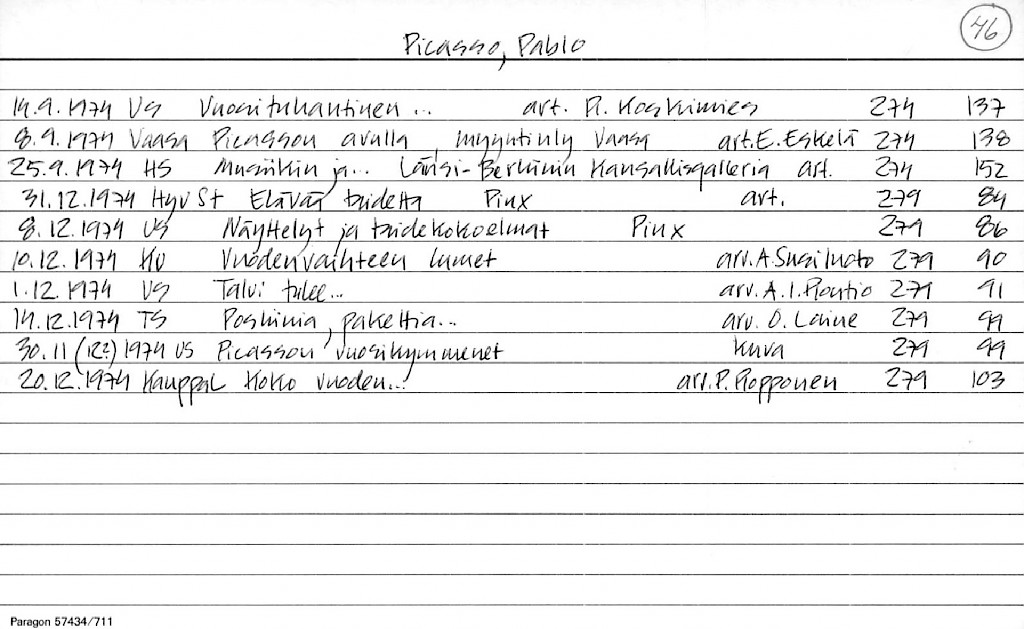 46
Picasso, Pablo
14.9.1974 US Vuosituhantinen ... art. R. Koskimies 274 137
8.9.1974 Vaasa Picasson avulla, myyntinäy Vaasa art. E. Eskelä 274 138
25.9.1974 HS Musiikin ja... Länsi-Berliinin Kansallisgalleria art. 274 152
31.12.1974 HyvSt Elävää taidetta Piux art. 279 84
8.12.1974 US Näyttelyt ja taidekokoelmat Piux 279 86
10.12.1974 KU Vuodenvaihteen lumet arv. A. Susiluoto 279 90
1.12.1974 US Talvi tulee... arv. A.I. Routio 279 91
14.12.1974 TS Poskinia, pakettia... arv. O. Laine 279 99
30.11 (12?) 1974 US Picasson vuosikymmenet kuva 279 99
20.12.1974 KauppaL Koko vuoden... arv. P. Ropponen 279 103
Paragon 57434/711